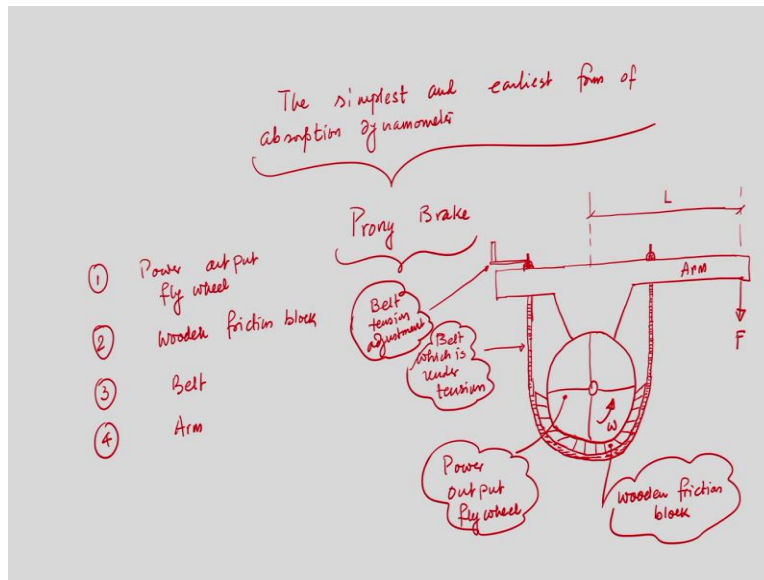 The simplest and earliest form of
absorption dynamometer
Prony Brake
① Power output
fly wheel
② Wooden friction block
③ Belt
④ Arm
L
Arm
F
Belt
tension
adjustment
Belt
which is
under
tension
ω
Power
output
fly wheel
wooden friction
block